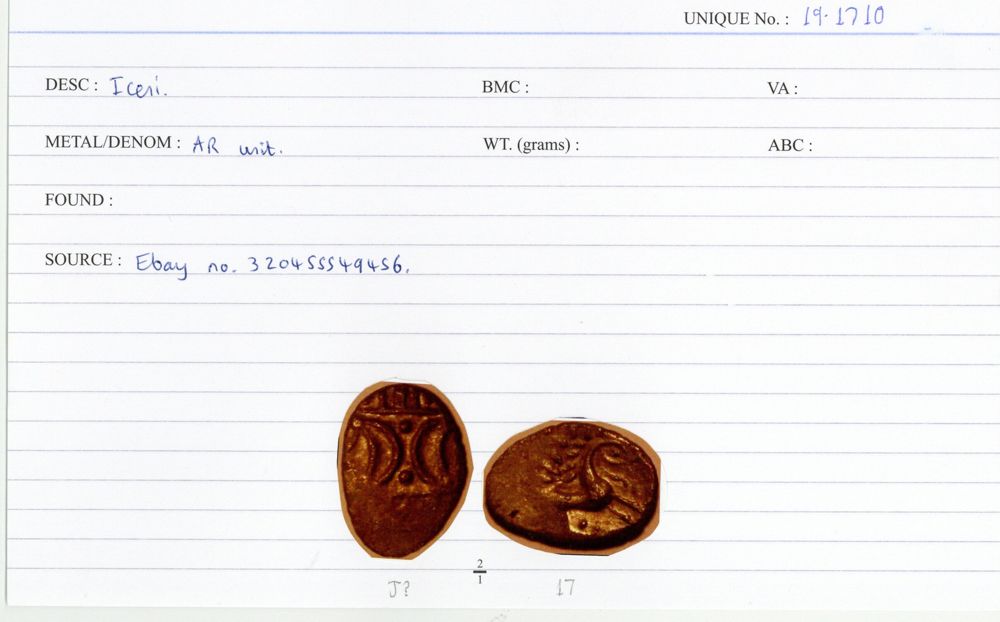 UNIQUE No. : 19.1710
DESC : Iceni. BMC : VA :
METAL/DENOM : AR unit. WT. (grams) : ABC :
FOUND :
SOURCE : Ebay no. 320455549456.
2
1
J? 17